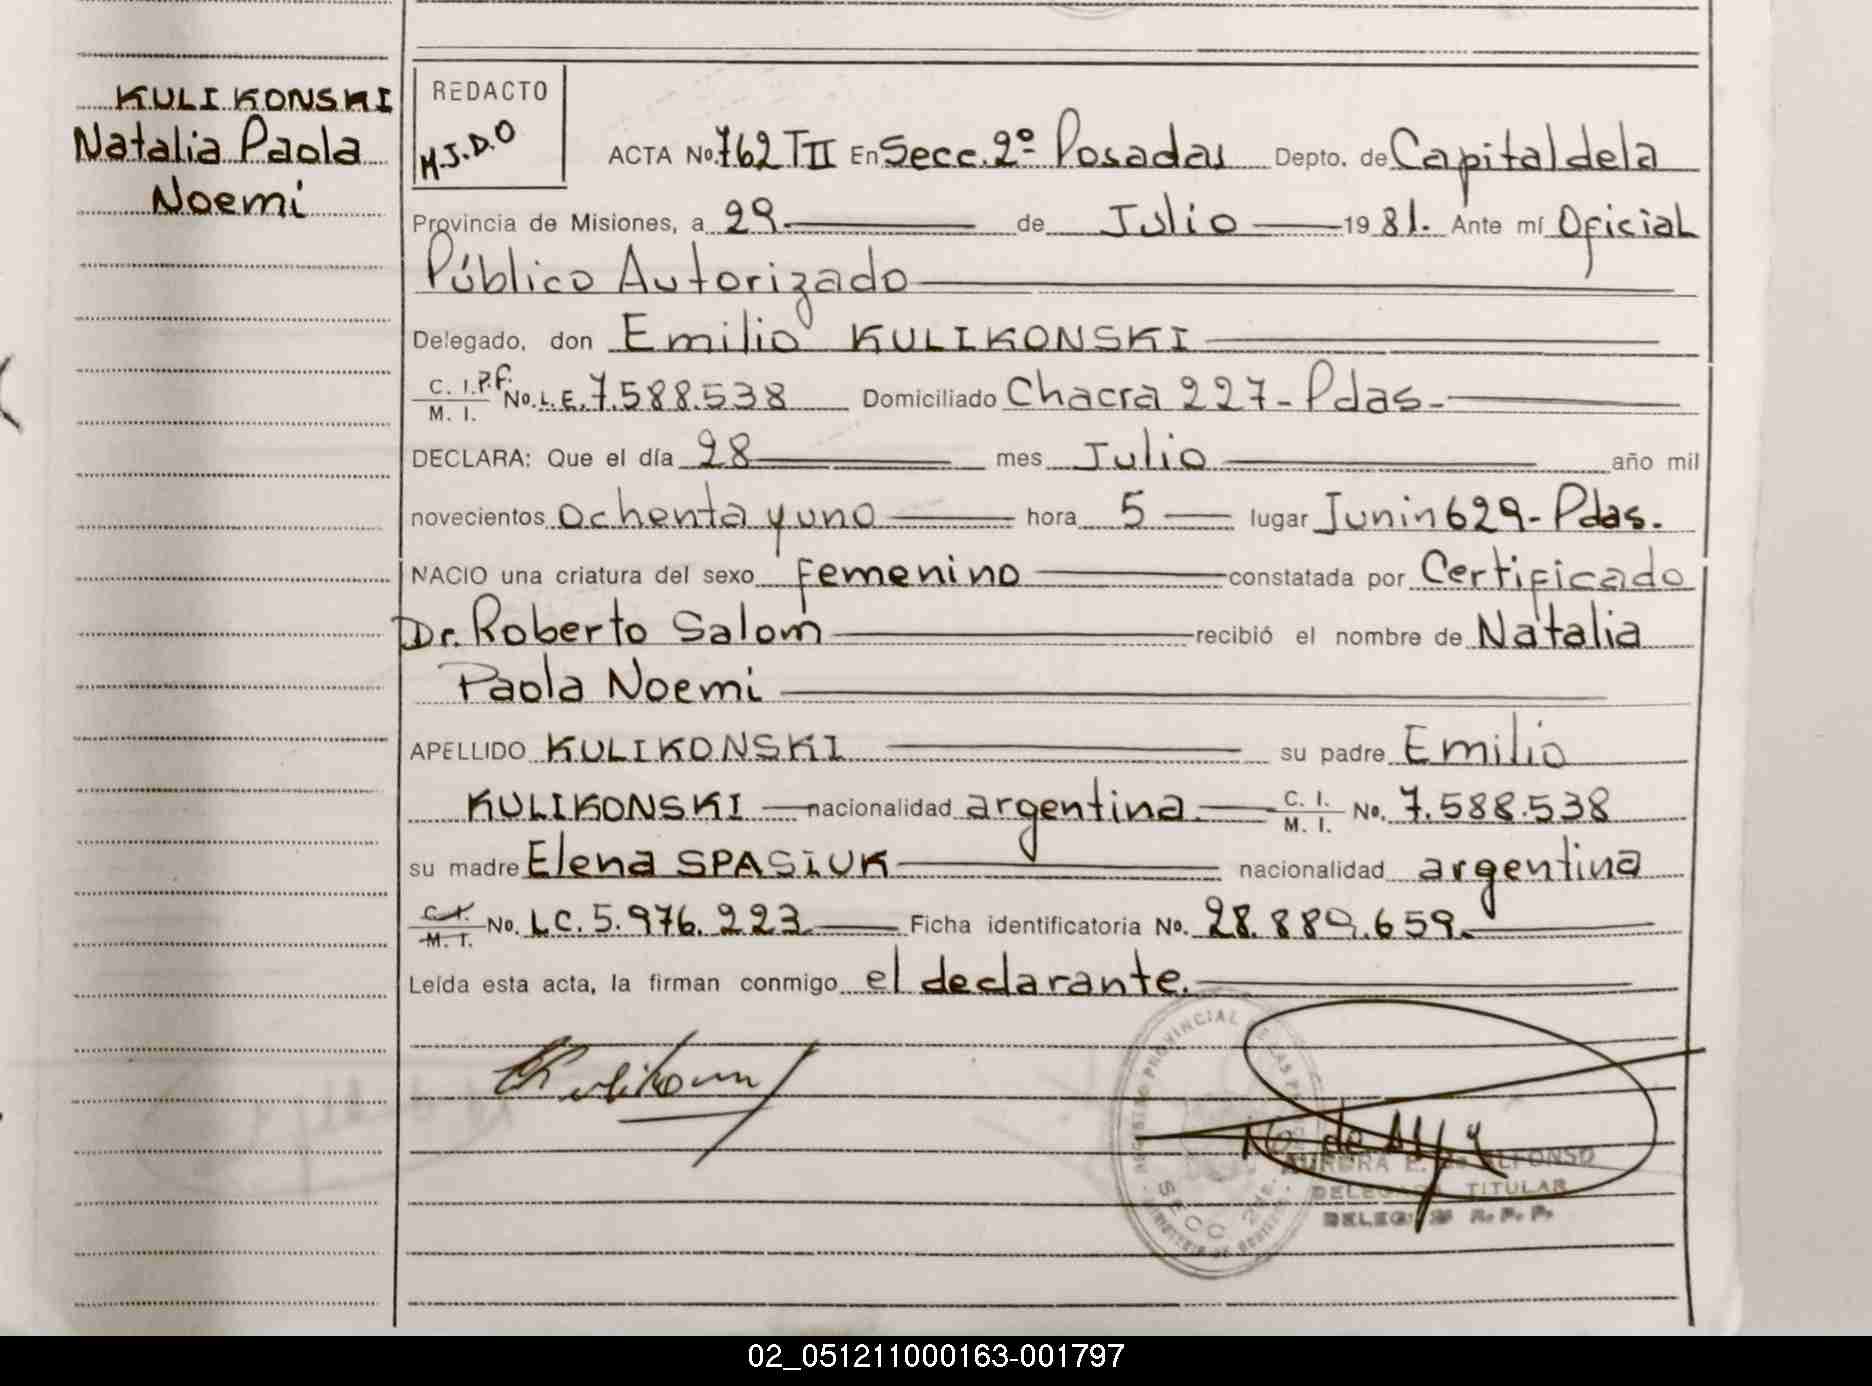 KULIKONSKI
Natalia Paola
Noemi
REDACTO
M.J.D.O
ACTA No. 762 TII En Secc. 2º Posadas Depto. de Capital de la
Provincia de Misiones, a 29 de Julio 1981. Ante mí Oficial
Público Autorizado
Delegado, don Emilio KULIKONSKI
C. I. P.F. M. I. No. L.E. 7.588.538 Domiciliado Chacra 227- Pdas-
DECLARA: Que el día 28 mes Julio año mil
novecientos ochenta y uno hora 5 lugar Junin 629- Pdas.
NACIO una criatura del sexo femenino constatada por Certificado
Dr. Roberto Salom recibió el nombre de Natalia
Paola Noemi
APELLIDO KULIKONSKI su padre Emilio
KULIKONSKI nacionalidad argentina C. I. M. I. No. 7.588.538
su madre Elena SPASIUK nacionalidad argentina
C. I. M. I. No. LC. 5.976.223 Ficha identificatoria No. 28.889.659.
Leída esta acta, la firman conmigo el declarante.
REGISTRO PROVINCIAL DE LAS
SECC 2da.
AURORA E. de ALFONSO
DELEGADA TITULAR
DELEG. R. P. P.
02_051211000163-001797